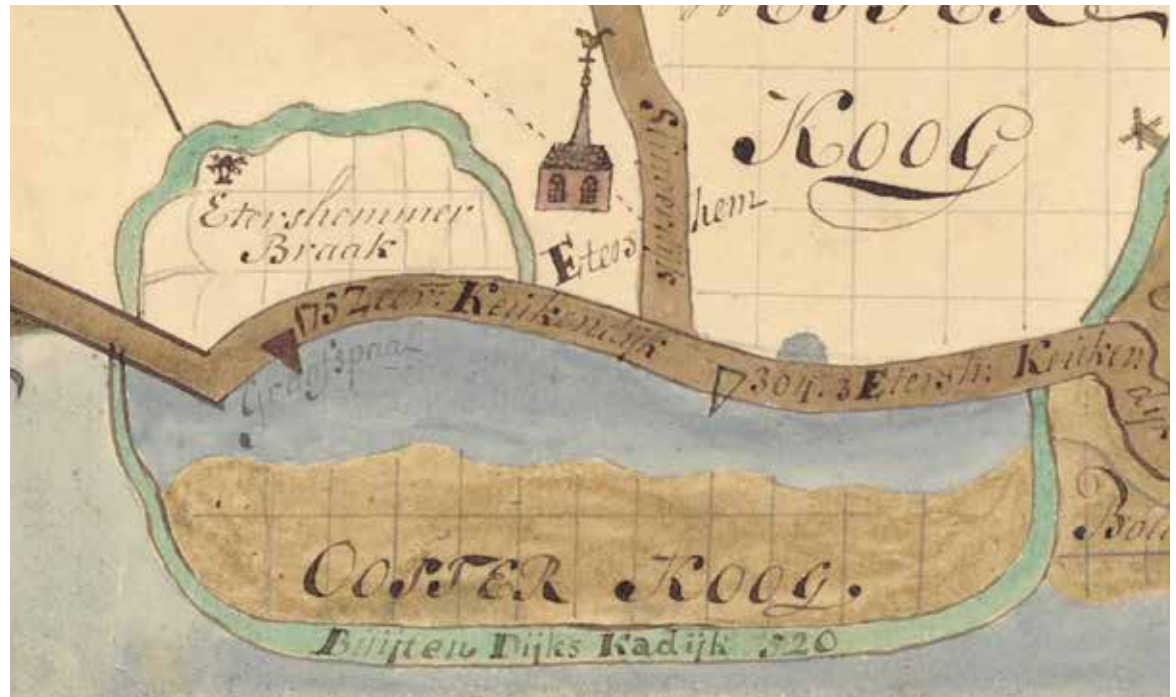 KOOG
Etershemmer
Braak
Etershem
175 Zeer: Keukendijk
Graafspaal
304.3 Etersh: Keuken
OOSTER KOOG.
Buijten Dijks Kadijk 520